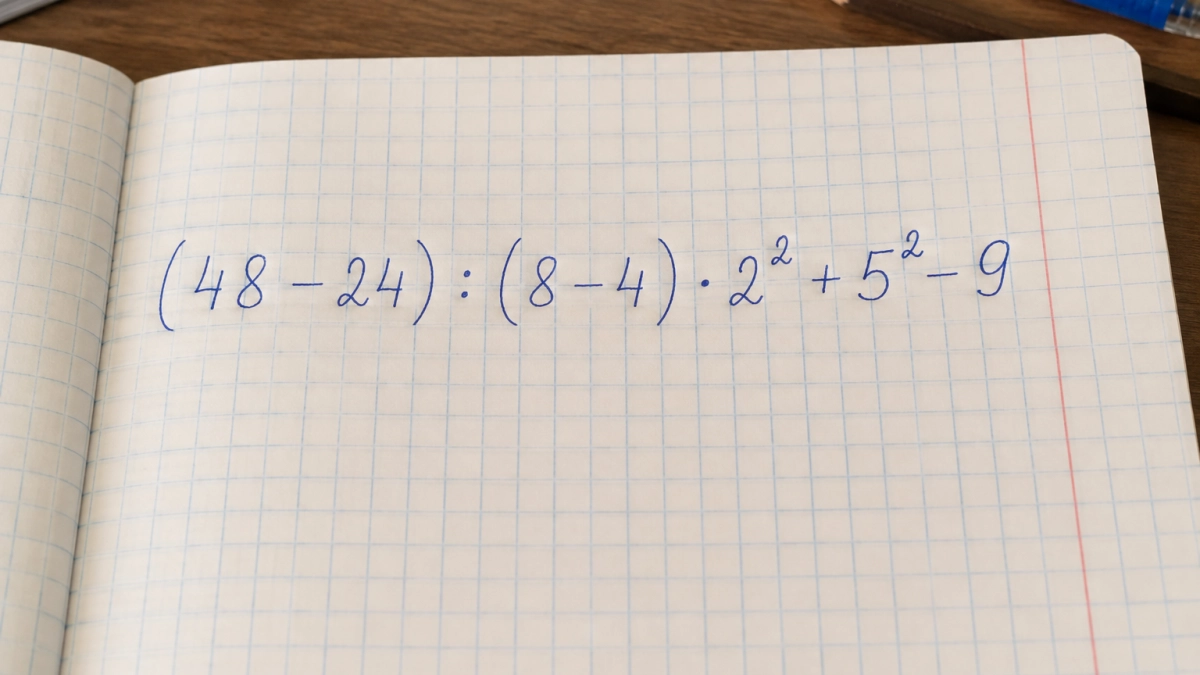 (48 − 24) : (8 − 4) · 2² + 5² − 9